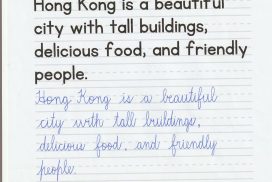 Hong Kong is a beautiful
city with tall buildings,
delicious food, and friendly
people.
Hong Kong is a beautiful
city with tall buildings,
delicious food, and friendly
people.